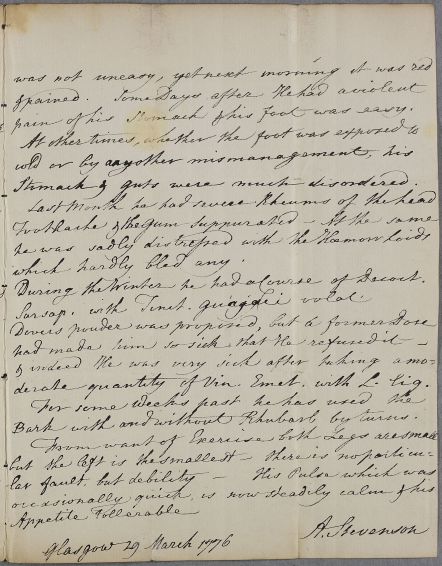 was not uneasy, yet next morning it was red
& pained. Some Days after He had a violent
pain of his Stomach & his foot was easy.
At other times, whether the foot was exposed to
cold or by any other mismanagement, his
Stomach & guts were much disordered.
Last Month he had severe Rheums of the head
Toothache & the Gum suppurated - At the same
he was sadly distressed with the Haemorrhoids
which hardly bled any.
During the Winter he had a Course of Decoct.
Sarsap. with Tinct. guajaci volat.
Dovers powder was proposed, but a former Dose
had made him so sick that He refused it -
& indeed He was very sick after taking a mo=
derate quantity of Vin. Emet. with L. Liq.
For some weeks past he has used the
Bark with and without Rhubarb by turns.
From want of Exercise both Legs are small
but the left is the smallest - There is no particu=
lar fault, but debility - His Pulse which was
occasionally quick, is now steadily calm & his
Appetite Tollerable
A. Stevenson
Glasgow 29 March 1776